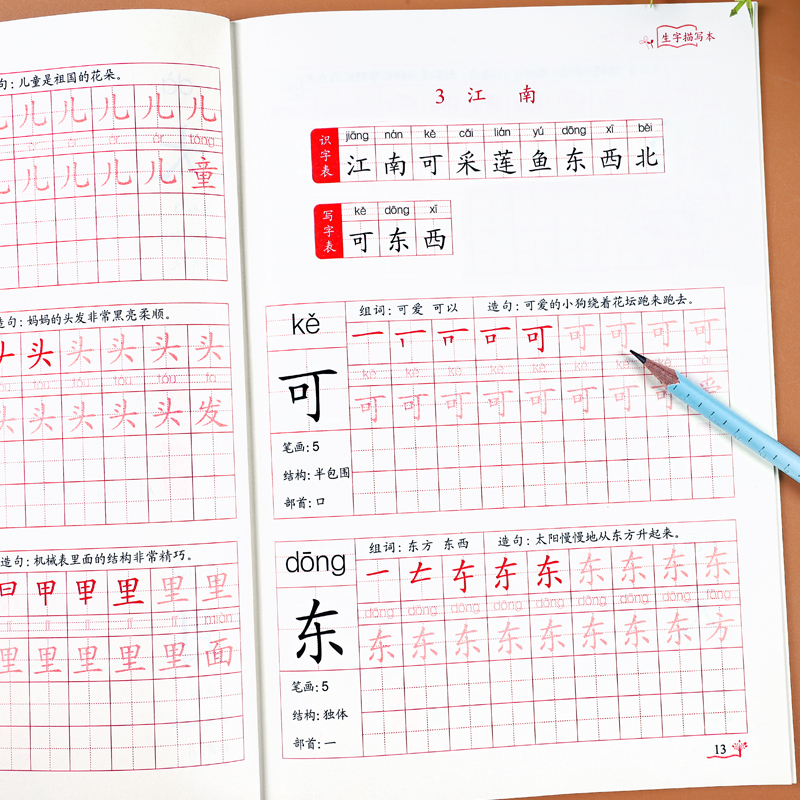 句:儿童是祖国的花朵。
儿 儿 儿 儿 儿
tóng
儿 儿 儿 儿 童
造句:妈妈的头发非常黑亮柔顺。
头 头 头 头 头
tóu tóu tóu
头 头 头 头 头 发
造句:机械表里面的结构非常精巧。
曰 甲 甲 里 里 里
lǐ lǐ lǐ lǐ miàn
里 里 里 里 里 面
生字描写本
3 江 南
识字表
jiāng nán kě cǎi lián yú dōng xī běi
江 南 可 采 莲 鱼 东 西 北
写字表
kě dōng xī
可 东 西
kě
组词:可爱 可以 造句:可爱的小狗绕着花坛跑来跑去。
可 可 可 可 可
kě kě kě kě kě kě kě
可
可 可 可 可 可 可 可 可 爱
笔画:5
结构:半包围
部首:口
dōng
组词:东方 东西 造句:太阳慢慢地从东方升起来。
东 东 东 东 东 东
dōng dōng dōng dōng dōng dōng dōng dōng fāng
东
东 东 东 东 东 东 东 东 方
笔画:5
结构:独体
部首:一
13